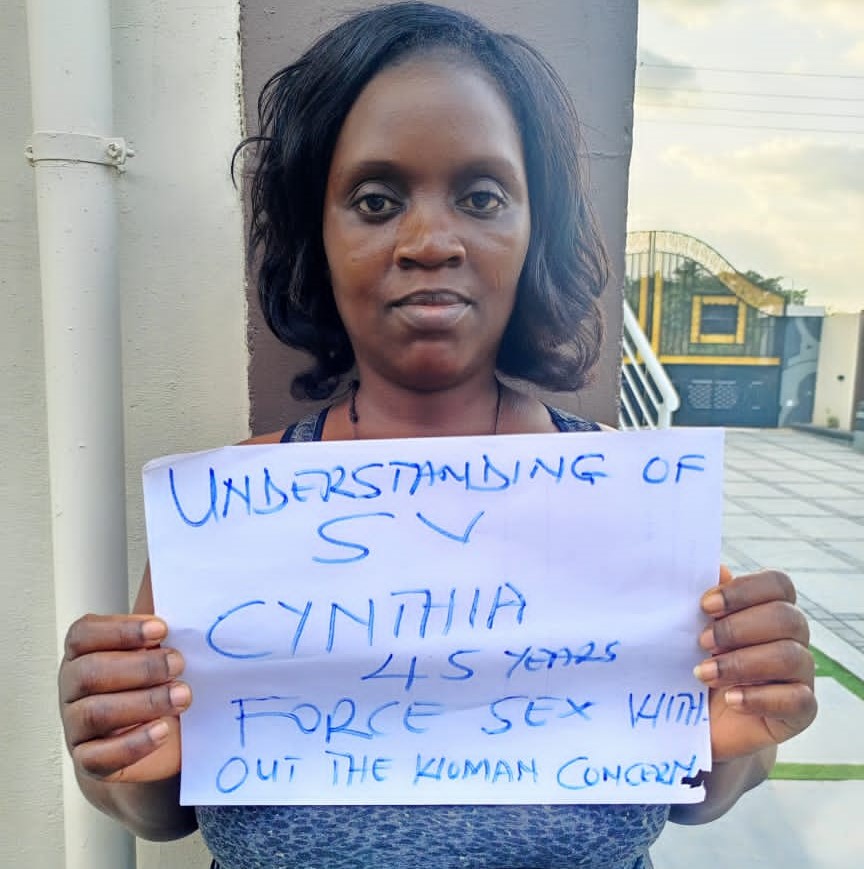 UNDERSTANDING OF
SV
CYNTHIA
45 YEARS
FORCE SEX WITH-
OUT THE WOMAN CONCERN